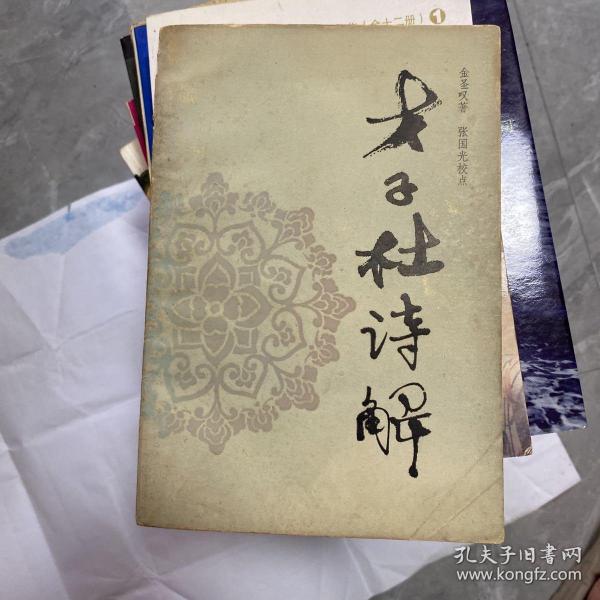 （全十二册）1
金圣叹著 张国光校点
才子杜诗解
孔夫子旧书网
www.kongfz.com